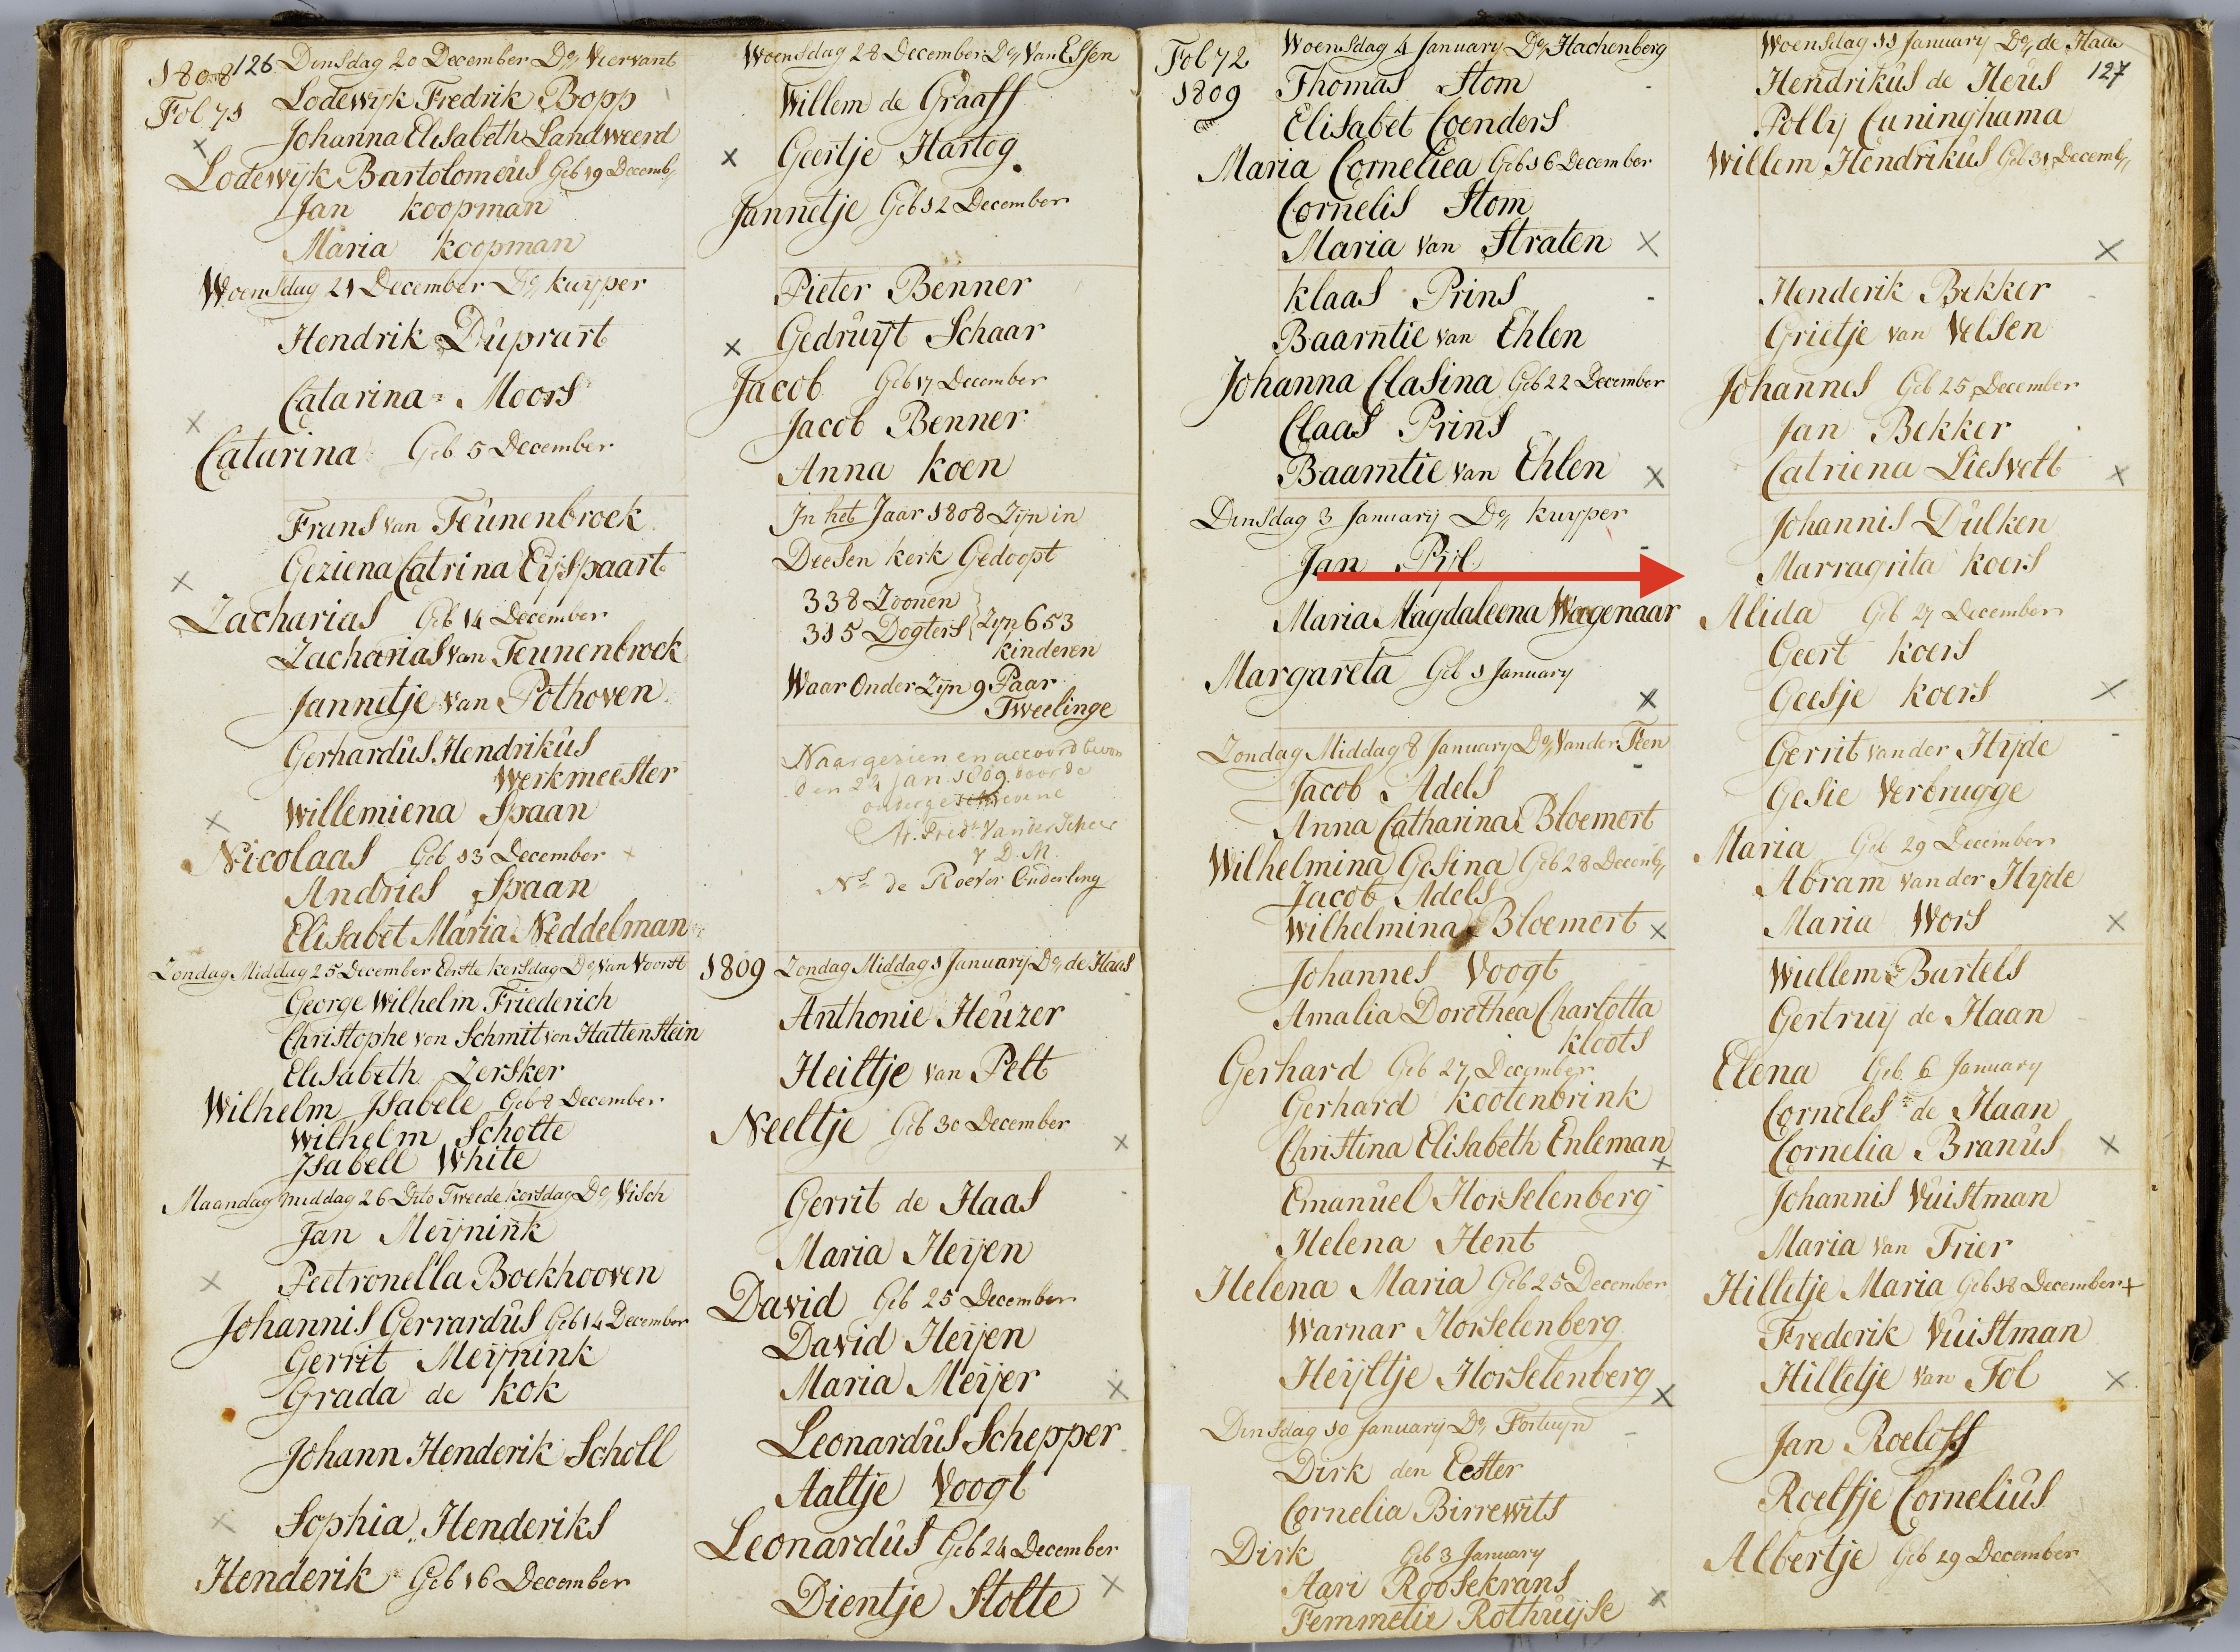 1808 126 Dinsdag 20 December Do Viervant
Fol 71 Lodewyk Fredrik Bopp
Johanna Elisabeth Landweerd
x
Lodewyk Bartolomeus Geb 19 Decemb
Jan Koopman
Maria Koopman
Woensdag 21 December Do Kuyper
Hendrik Duprart
Catarina Moors
x
Catarina Geb 5 December
Frans van Teunenbroek
Geziena Catrina Eijspaart
x
Zacharias Geb 14 December
Zacharias van Teunenbroek
Jannitje van Pothoven
Gerhardus Hendrikus
Werkmeester
Willemiena Spaan
x
Nicolaas Geb 13 December x
Andries Spaan
Elisabet Maria Neddelman
Zondag Middag 25 December Eerste kersdag Do Van Voorst
George Wilhelm Friederich
Christophe von Schmit von Hattenstein
Elisabeth Zersker
Wilhelm Isabele Geb 8 December
Wilhelm Scholte
Isabell White
Maandag middag 26 Dito Tweede kersdag Do Visch
Jan Meijnink
Peetronella Boekhooven
x
Johannis Gerrardus Geb 14 December
Gerrit Meijnink
Grada de Kok
Johann Henderik Scholl
x Sophia Henderiks
Henderik Geb 16 December
Woensdag 28 December Do Van Essen
Willem de Graaff
x Geertje Hartog
Jannetje Geb 12 December
Pieter Benner
x Gedruijt Schaar
Jacob Geb 17 December
Jacob Benner
Anna Koen
In het Jaar 1808 Zijn in
Deesen kerk Gedoopt
338 Zoonen
315 Dogters Zijn 653
kinderen
Waar Onder Zijn 9 Paar
Tweelinge
Naargezien en accoord bevon
den 24 Jan. 1809 door de
ondergeschrevene
Fredk Van der Scheer
V. D. M.
Ns de Roever Ouderling
1809 Zondag Middag 1 January Do de Haas
Anthonie Heuzer
Heiltje van Pelt
Neeltje Geb 30 December
x
Gerrit de Haas
Maria Heijen
David Geb 25 December
David Heijen
Maria Meijer x
Leonardus Schepper
Aaltje Voogt
Leonardus Geb 24 December
Dientje Stolte x
Fol 72 Woensdag 4 January Do Hachenberg
1809 Thomas Stom
Elisabet Coenders
Maria Corneliea Geb 16 December
Cornelis Stom
Maria van Straten x
Klaas Prins
Baarntie van Ehlen
Johanna Clasina Geb 22 December
Claas Prins
Baarntie van Ehlen x
Dinsdag 3 January Do Kuyper
Jan Pijl
Maria Magdaleena Wagenaar
Margareta Geb 1 January
x
Zondag Middag 8 January Do Van der Feen
Jacob Adels
Anna Catharina Bloemert
Wilhelmina Gesina Geb 28 Decemb
Jacob Adels
Wilhelmina Bloemert x
Johannes Voogt
Amalia Dorothea Charlotta
Kloots
Gerhard Geb 27 December
Gerhard Kootenbrink
Christina Elisabeth Enleman
x
Emanuel Horselenberg
Helena Hent
Helena Maria Geb 25 December
Warnar Horselenberg
Heijltje Horselenberg x
Dinsdag 10 January Do Fortuyn
Dirk den Eester
Cornelia Birrewits
Dirk Geb 3 January
Aari Roosekrans
Femmetie Rothuijse x
Woensdag 11 January Do de Haas
Hendrikus de Heus 127
Polly Cuninghama
Willem Hendrikus Geb 31 Decemb
x
Henderik Bekker
Grietje van Velsen
Johannes Geb 25 December
Jan Bekker
Catriena Liesvelt x
Johannis Dulken
Marragrita Koers
Alida Geb 27 December
Geert Koers
Geesje Koers x
Gerrit van der Hijde
Gesie Verbrugge
Maria Geb 29 December
Abram van der Hijde
Maria Wors x
Wiellem Bartels
Gertruij de Haan
Elena Geb 6 January
Corneles de Haan
Cornelia Branus x
Johannis Vuistman
Maria van Trier
Hilletje Maria Geb 18 December +
Frederik Vuistman
Hilletje van Tol x
Jan Roeloff
Roelfje Cornelius
Albertje Geb 29 December